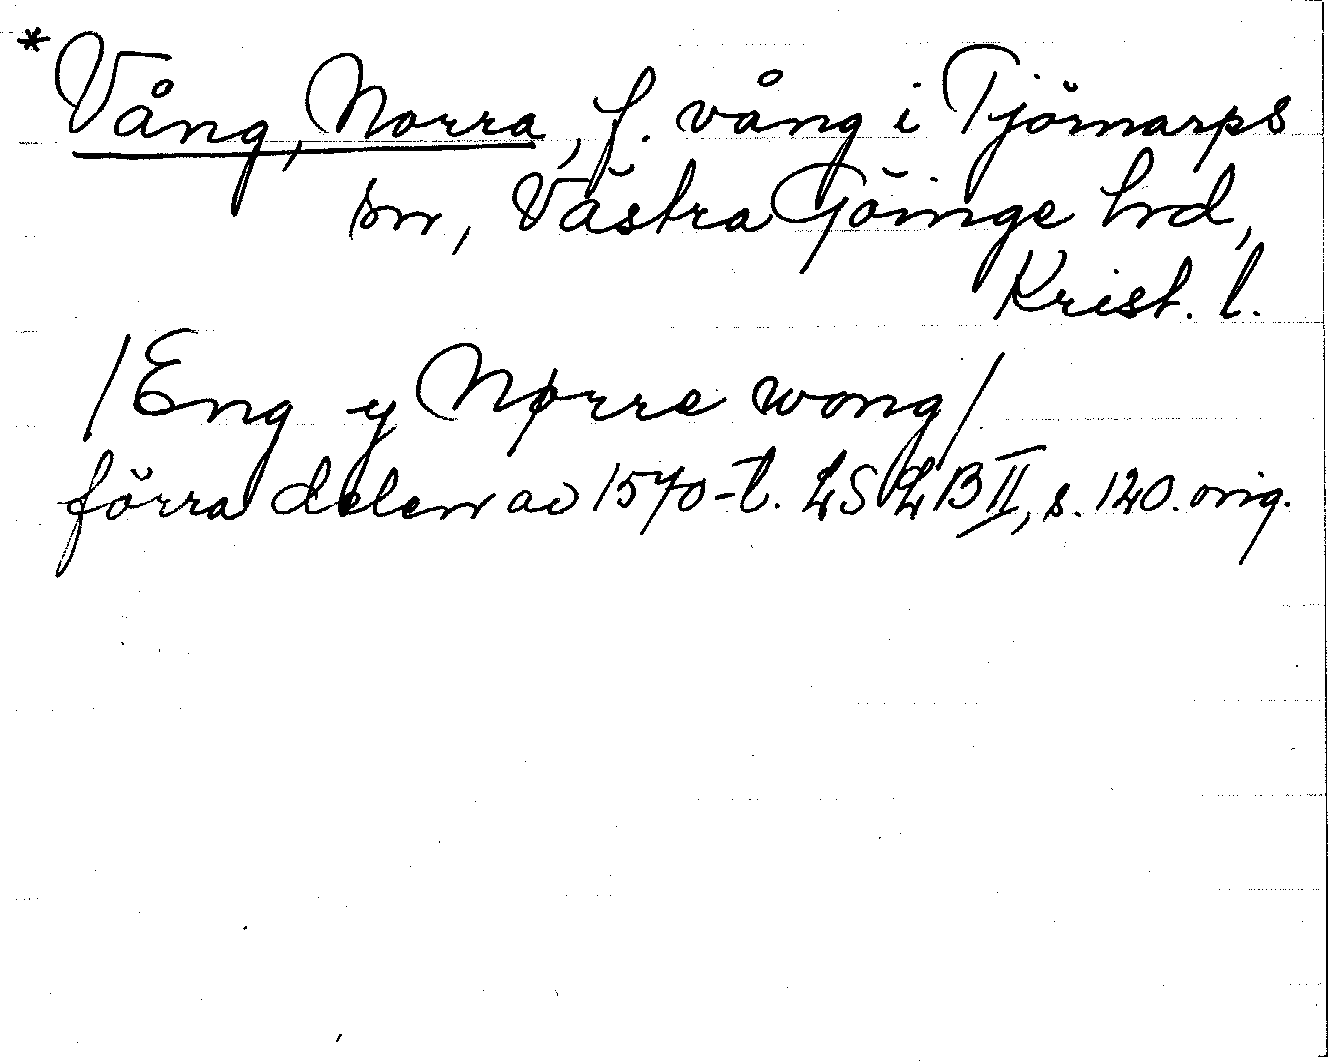 *Vång, Norra, f. vång i Tjörnarps
sn, Västra Göinge hrd,
Krist. l.
/Eng y Nørre wong/
förra delen av 1570-t. LSLB II, s. 120. orig.